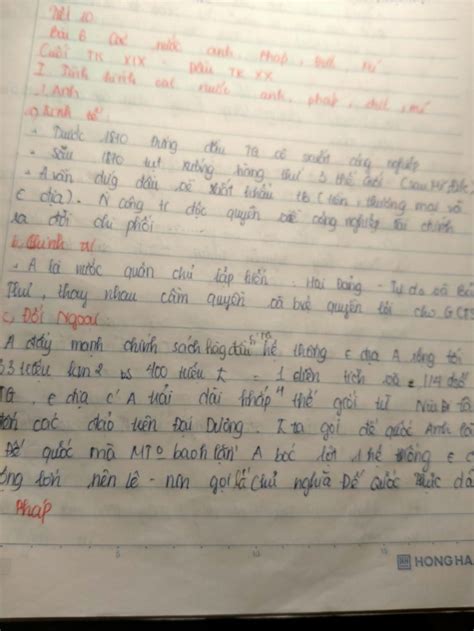 Tiết 10
Bài 6 Các nước anh, Pháp, Đức, Mĩ
Cuối TK XIX - Đầu TK XX
I. Tình hình các nước anh, pháp, đức, mĩ
1. Anh
a) Kinh tế
- Trước 1870 Đứng đầu TG về xuất công nghiệp
- Sau 1870 tụt xuống hàng thứ 3 thế Giới (sau Mĩ, Đức)
- A vẫn đứg đầu về xuất khẩu tb (tiền, thương mại và
€ địa). N công ti độc quyền về công nghiệp tài chính
ra đời chi phối
b. Chính trị
- A là nước quân chủ lập hiến. Hai Đảng - Tự do và Bảo
Thủ, thay nhau cầm quyền và bvệ quyền lợi cho GCTS
c, Đối Ngoại
A đẩy mạnh chính sách hệ thống € địa A rộng tới
33 triệu km2 vs 400 triệu = 1 diện tích và 1/4 dsố
TG, € địa c' A trải dài khắp thế giới từ Niu Di
các đảo trên Đại Dương. I ta gọi đế quốc Anh là
Đế quốc mà MTº bao h lặn' A bóc lột 1 hệ thống €
nên lê - nin gọi là Chủ nghĩa Đế Quốc Thực dân
Pháp
5 10 15
HONG HA